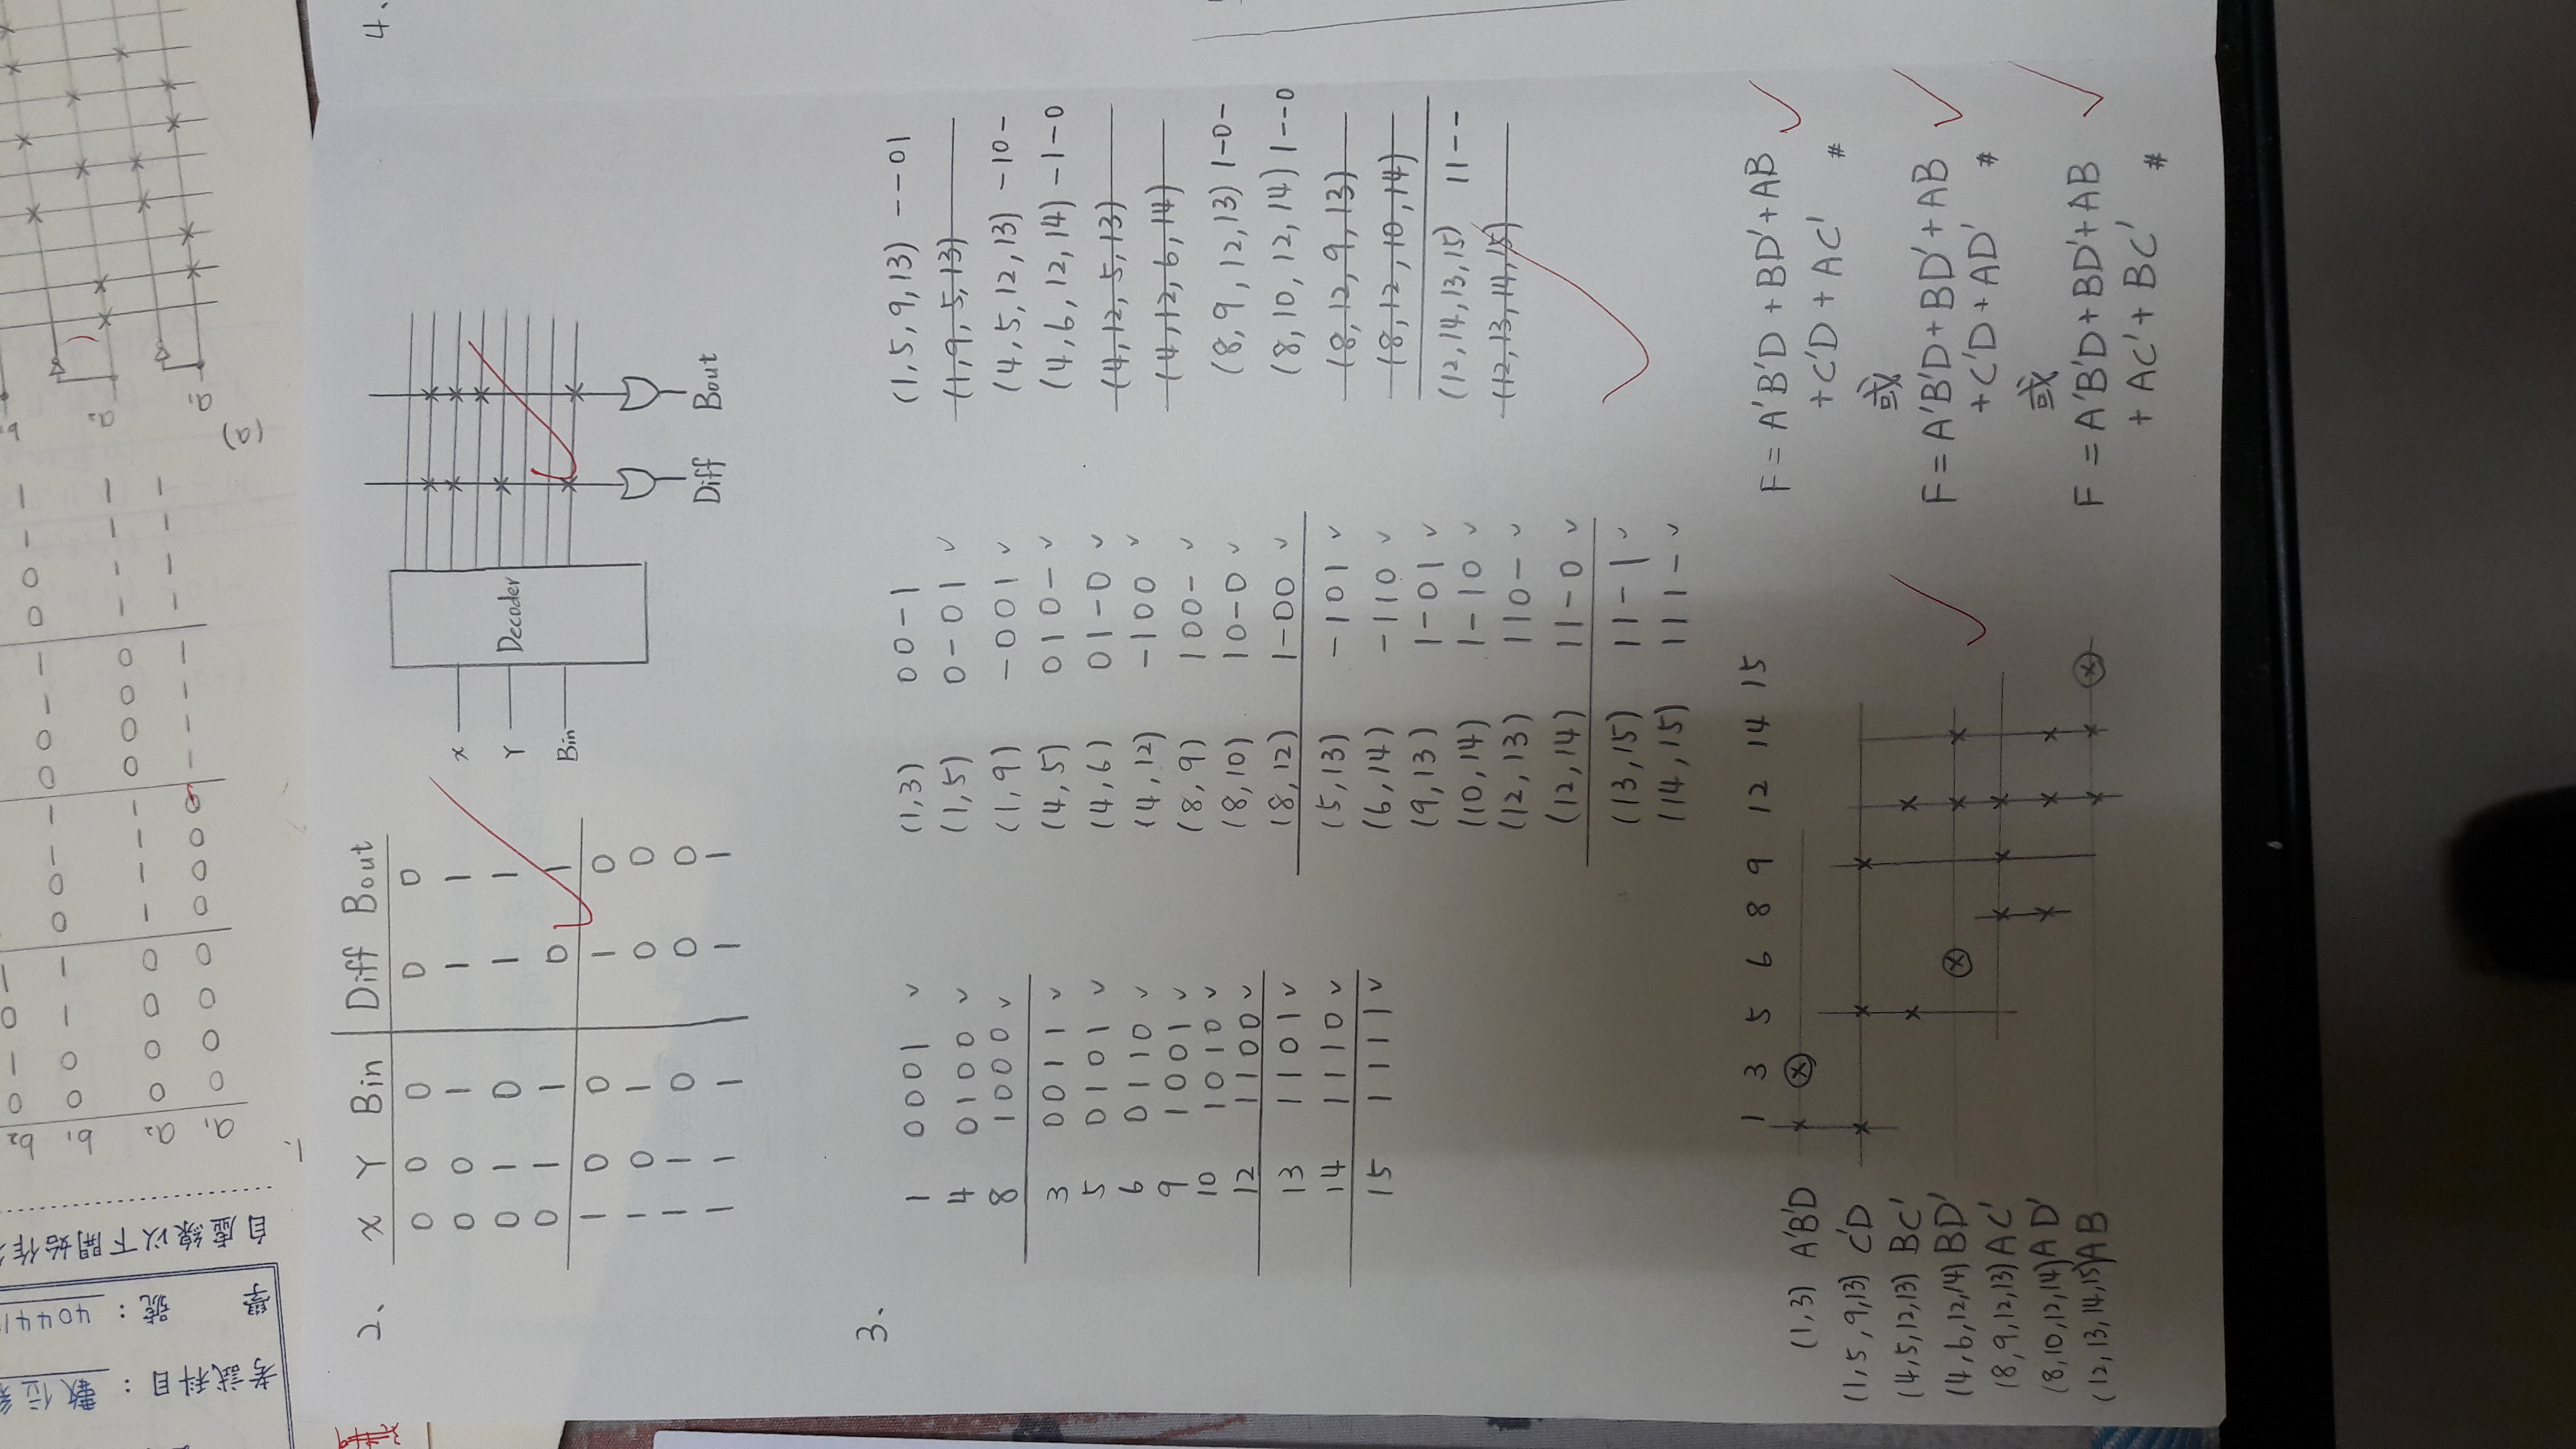 考試科目：數位系
學 號：40441
自虛線以下開始作
1.
a₁ a₂ b₁ b₂
0 0 0 0
0 0 0 1
0 0 1 0
0 0 1 1
(a)
a₁
a₂
2.
X Y Bin Diff Bout
0 0 0 0 0
0 0 1 1 1
0 1 0 1 1
0 1 1 0 1
1 0 0 1 0
1 0 1 0 0
1 1 0 0 0
1 1 1 1 1
X
Y
Bin
Decoder
Diff Bout
4.
3.
1 0001 ✓
4 0100 ✓
8 1000 ✓
3 0011 ✓
5 0101 ✓
6 0110 ✓
9 1001 ✓
10 1010 ✓
12 1100 ✓
13 1101 ✓
14 1110 ✓
15 1111 ✓
(1,3) 00-1
(1,5) 0-01 ✓
(1,9) -001 ✓
(4,5) 010- ✓
(4,6) 01-0 ✓
(4,12) -100 ✓
(8,9) 100- ✓
(8,10) 10-0 ✓
(8,12) 1-00 ✓
(5,13) -101 ✓
(6,14) -110 ✓
(9,13) 1-01 ✓
(10,14) 1-10 ✓
(12,13) 110- ✓
(12,14) 11-0 ✓
(13,15) 11-1 ✓
(14,15) 111- ✓
(1,5,9,13) --01
(1,9,5,13)
(4,5,12,13) -10-
(4,6,12,14) -1-0
(4,12,5,13)
(4,12,6,14)
(8,9,12,13) 1-0-
(8,10,12,14) 1--0
(8,12,9,13)
(8,12,10,14)
(12,14,13,15) 11--
(12,13,14,15)
1 3 5 6 8 9 12 14 15
(1,3) A'B'D
(1,5,9,13) C'D
(4,5,12,13) BC'
(4,6,12,14) BD'
(8,9,12,13) AC'
(8,10,12,14) AD'
(12,13,14,15) AB
F = A'B'D + BD' + AB
+ C'D + AC' #
或
F = A'B'D + BD' + AB
+ C'D + AD' #
或
F = A'B'D + BD' + AB
+ AC' + BC' #